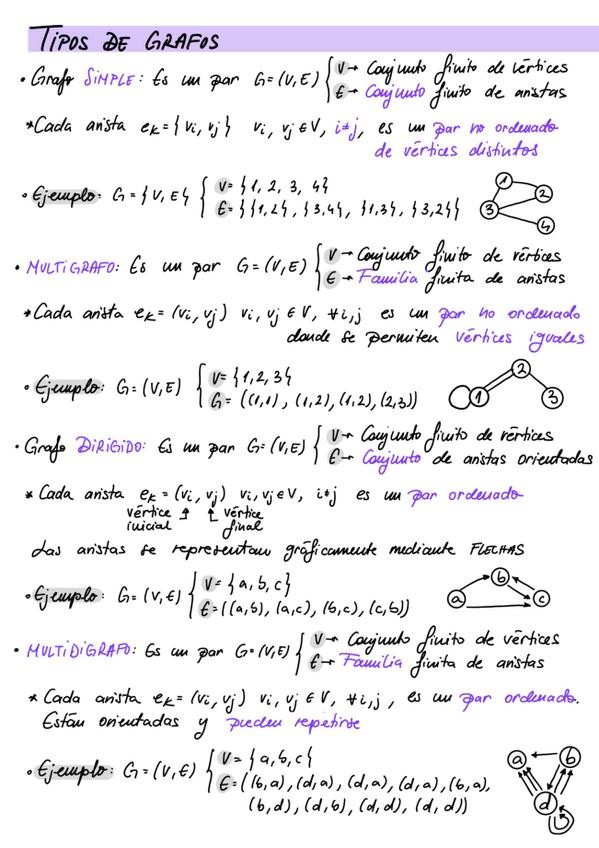 TIPOS DE GRAFOS
• Grafo SIMPLE: Es un par G=(V,E) { V→ Conjunto finito de vértices
E→ Conjunto finito de aristas
*Cada arista eₖ={vᵢ, vⱼ} vᵢ, vⱼ ∈ V, i≠j, es un par no ordenado
de vértices distintos
• Ejemplo: G={V, E} { V={1, 2, 3, 4}
E={{1,2}, {3,4}, {1,3}, {3,2}}
1
2
3
4
• MULTIGRAFO: Es un par G=(V,E) { V→ Conjunto finito de vértices
E→ Familia finita de aristas
*Cada arista eₖ=(vᵢ, vⱼ) vᵢ, vⱼ ∈ V, ∀i,j es un par no ordenado
donde se permiten vértices iguales
• Ejemplo: G=(V,E) { V={1,2,3}
G=((1,1), (1,2), (1,2), (2,3))
2
1
3
• Grafo DIRIGIDO: Es un par G=(V,E) { V→ Conjunto finito de vértices
E→ Conjunto de aristas orientadas
* Cada arista eₖ=(vᵢ, vⱼ) vᵢ, vⱼ ∈ V, i≠j es un par ordenado
vértice inicial ↑ ↑ vértice final
Las aristas se representan gráficamente mediante FLECHAS
• Ejemplo: G=(V,E) { V={a,b,c}
E=((a,b), (a,c), (b,c), (c,b))
b
a
c
• MULTIDIGRAFO: Es un par G=(V,E) { V→ Conjunto finito de vértices
E→ Familia finita de aristas
* Cada arista eₖ=(vᵢ, vⱼ) vᵢ, vⱼ ∈ V, ∀i,j, es un par ordenado.
Están orientadas y pueden repetirse
• Ejemplo: G=(V,E) { V={a,b,c}
E=((b,a), (d,a), (d,a), (d,a), (b,a),
(b,d), (d,b), (d,d), (d,d))
a
b
d